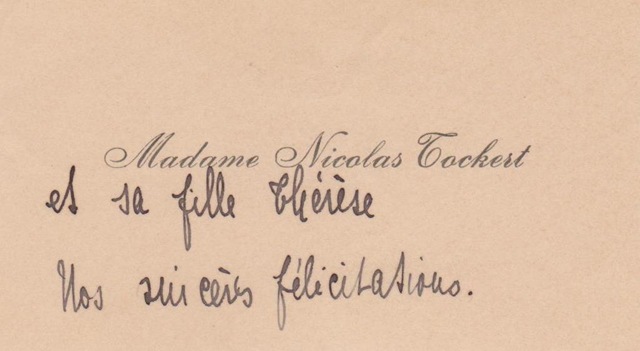 Madame Nicolas Tockert
et sa fille Thérèse
Nos sincères félicitations.